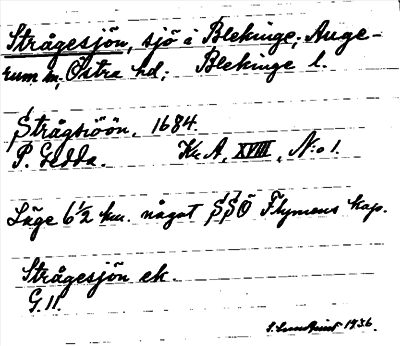 Strågesjön, sjö i Blekinge; Auge-
rum sn; Östra hd; Blekinge l.
Strågsiöön, 1684.
P. Gedda. Kr. A. XVIII, N:o 1.
Läge 6½ km. något SSÖ Flymens kap.
Strågesjön ek.
G. 11.
1936.